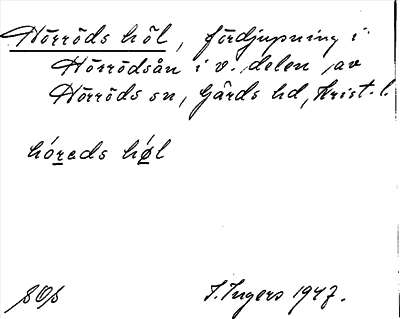 Hörröds höl, fördjupning i
Hörrödsån i v. delen av
Hörröds sn, Gärds hd, Krist. l.
hóreds hǿl
I. Ingers 1947.